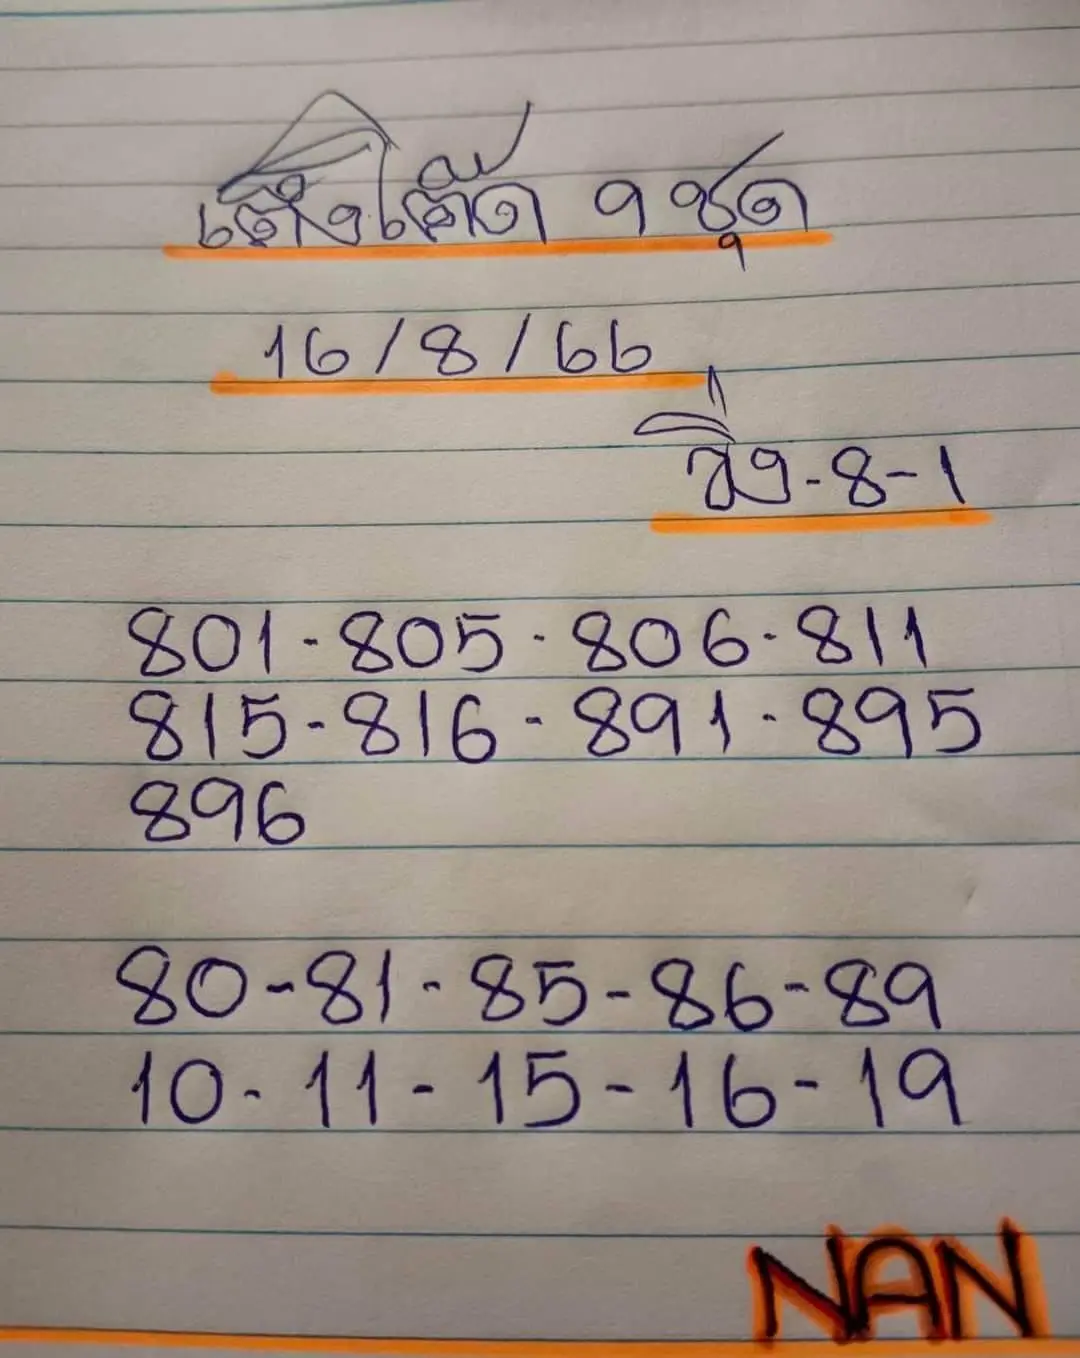 เต็งโต๊ด 9 ชุด
16/8/66
วิ่ง-8-1
801-805-806-811
815-816-891-895
896
80-81-85-86-89
10-11-15-16-19
NAN